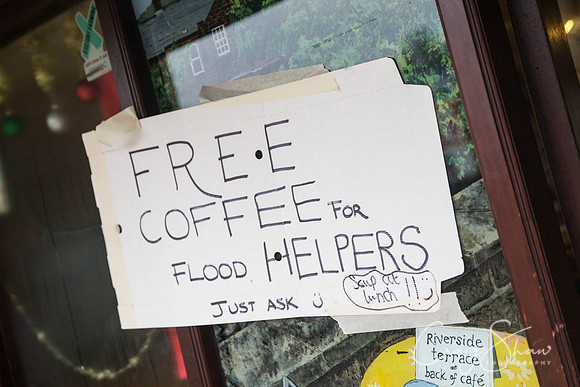 FREE
COFFEE FOR
FLOOD HELPERS
JUST ASK
Soup at
lunch!!
Riverside
terrace
at
back of café
Shaw
PHOTOGRAPHY